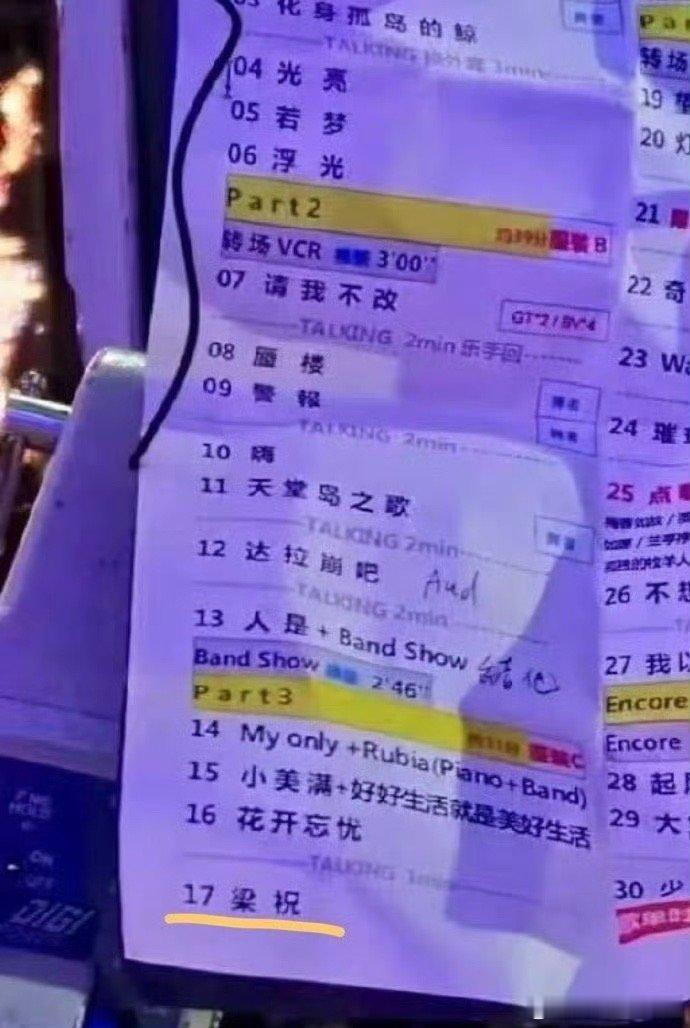 03 化身孤岛的鲸
TALKING 3min
04 光亮
05 若梦
06 浮光
Part2
约39分 服装B
转场VCR 3'00''
07 请我不改
GT*2 / BV*4
TALKING 2min 乐手回
08 蜃楼
09 警报
TALKING 2min
10 嗨
11 天堂岛之歌
TALKING 2min
12 达拉崩吧
Aud
TALKING 2min
13 人是 + Band Show
Band Show 2'46''
Part3
约31分 服装C
14 My only +Rubia(Piano+Band)
15 小美满+好好生活就是美好生活
16 花开忘忧
TALKING 1min
17 梁祝
转场
19
20
21
22 奇
23 Wa
24 璀
25 点
26 不想
27 我以
Encore
Encore
28 起
29 大
30 少
ON
OFF
DIGI